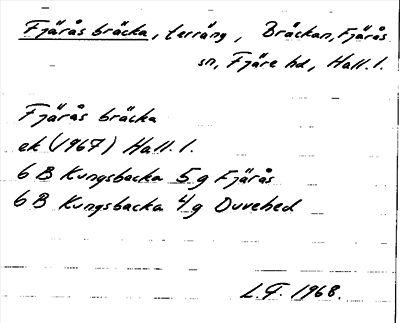 Fjärås bräcka, terräng, Bräckan, Fjärås
sn, Fjäre hd, Hall. l.
Fjärås bräcka
ek (1967) Hall. l.
6 B Kungsbacka 5 g Fjärås
6 B Kungsbacka 4 g Duvehed
L.F. 1968.